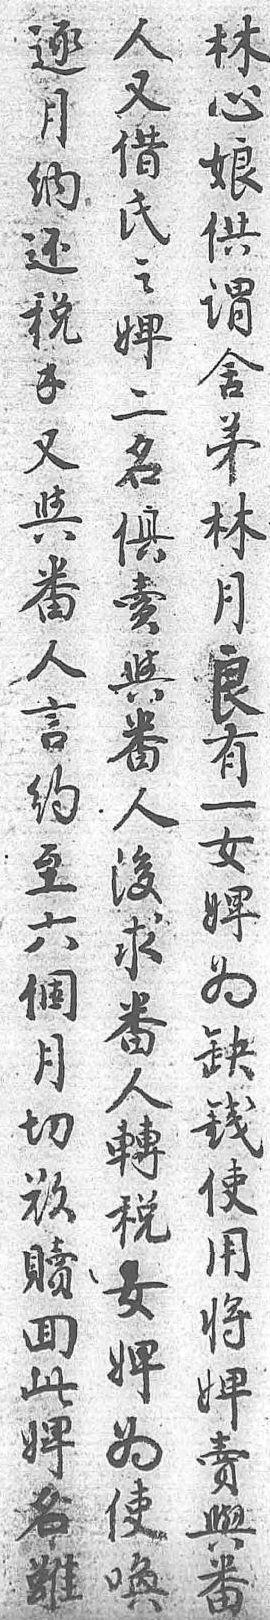 林心娘供謂舍弟林月良有一女婢为缺錢使用将婢賣與番
人又借氏之婢二名俱賣與番人後求番人轉税女婢为使喚
逐月纳还税手又與番人言约至六個月切欵贖回此婢名雖